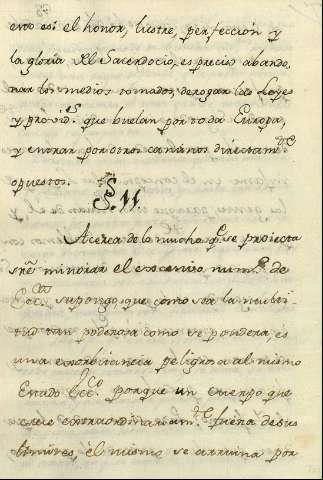 esto es: el honor, lustre, perfección y
la gloria del Sacerdocio, es preciso abando,
nar los medios tomados, derogar las Leyes
y provid.s que buelan por toda Europa,
y entrar por otros caminos directam.te
opuestos.
§. 11.
Acerca de lo mucho q.e se proiecta
sre minorar el excesivo num.o de
Ecc.cos supongo, que como sea la multi-
tud tan poderosa como se pondera, es
una exorbitancia peligrosa al mismo
Estado Ecc.co porque un cuerpo que
crece extraordinariam.te fuera de sus
limites, él mismo se arruina por